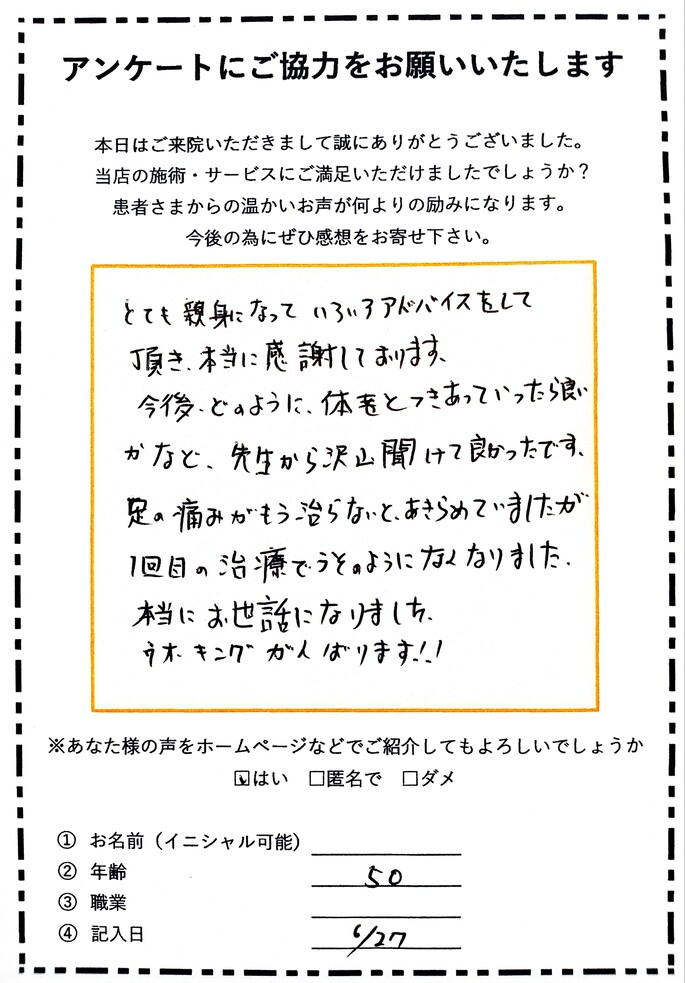 アンケートにご協力をお願いいたします
本日はご来院いただきまして誠にありがとうございました。
当店の施術・サービスにご満足いただけましたでしょうか？
患者さまからの温かいお声が何よりの励みになります。
今後の為にぜひ感想をお寄せ下さい。
とても親身になって いろいろアドバイスをして
頂き、本当に感謝しております。
今後、どのように、体重とつきあっていったら良い
かなど、先生から沢山聞けて良かったです。
足の痛みがもう治らないと、あきらめていましたが
1回目の治療でうそのようになくなりました。
本当にお世話になりました。
ウオーキングがんばります!!
※あなた様の声をホームページなどでご紹介してもよろしいでしょうか
☑はい □匿名で □ダメ
① お名前（イニシャル可能）
② 年齢 50
③ 職業
④ 記入日 6/27